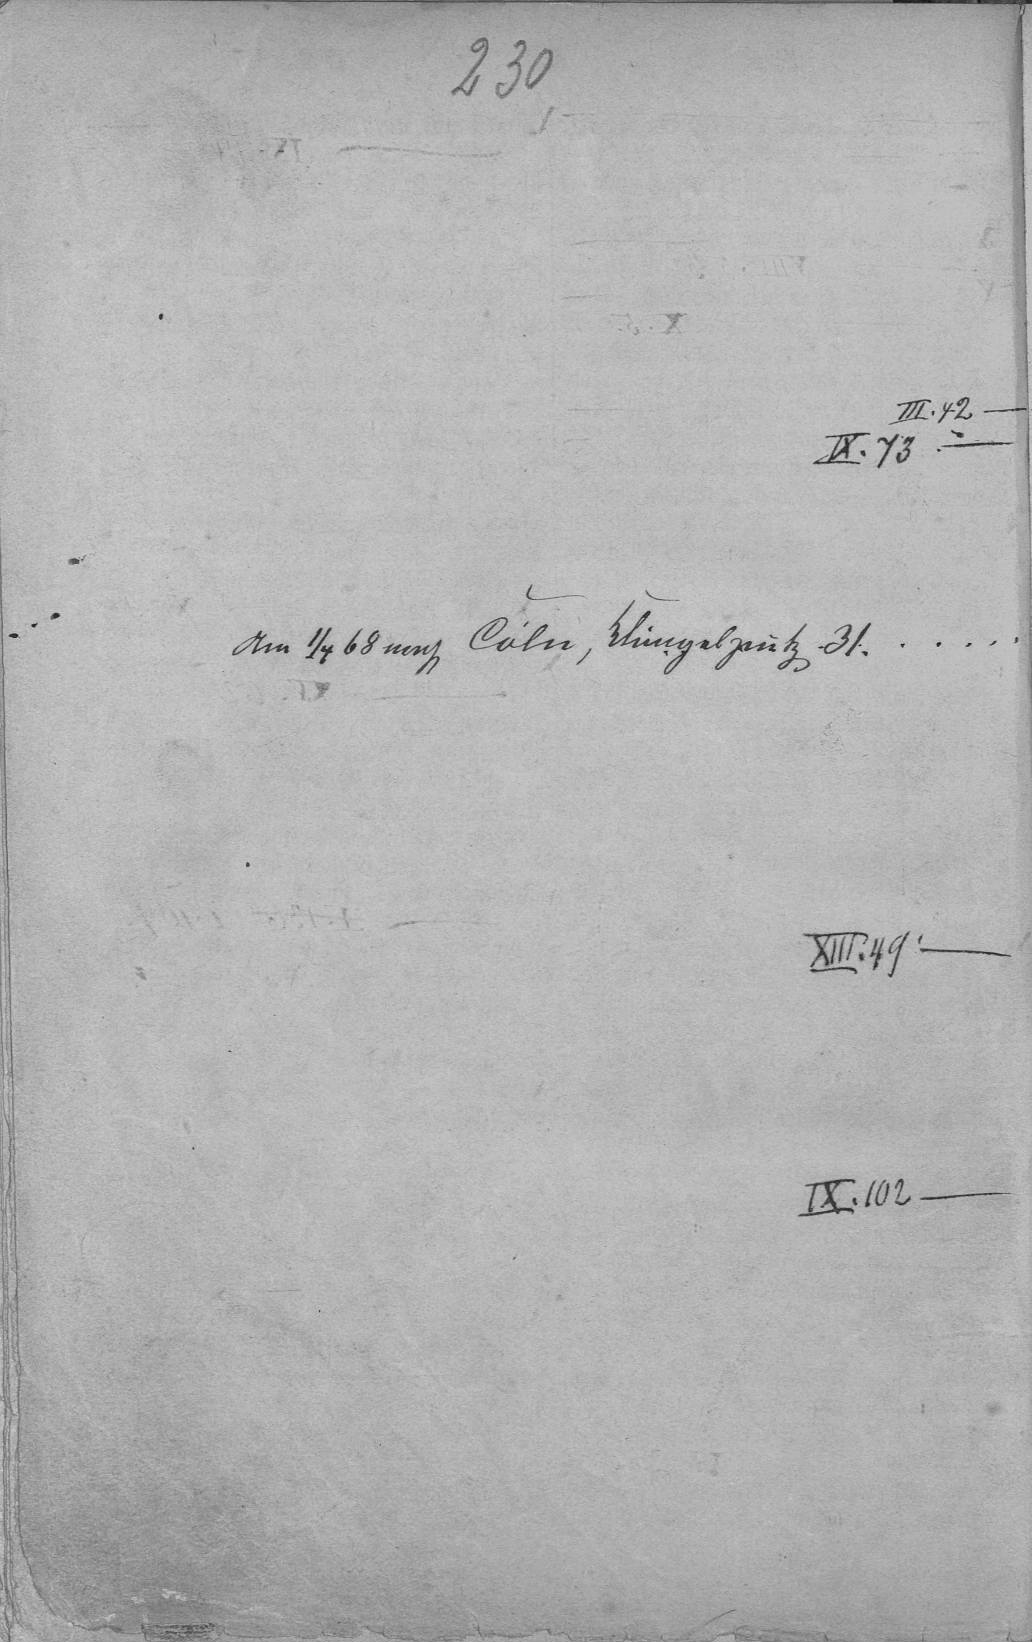 230
III. 42 —
IX. 73 —
Am 1/4 68 nach Cöln, Klingelpütz 31. . . . . .
XIII. 49 —
IX. 102 —